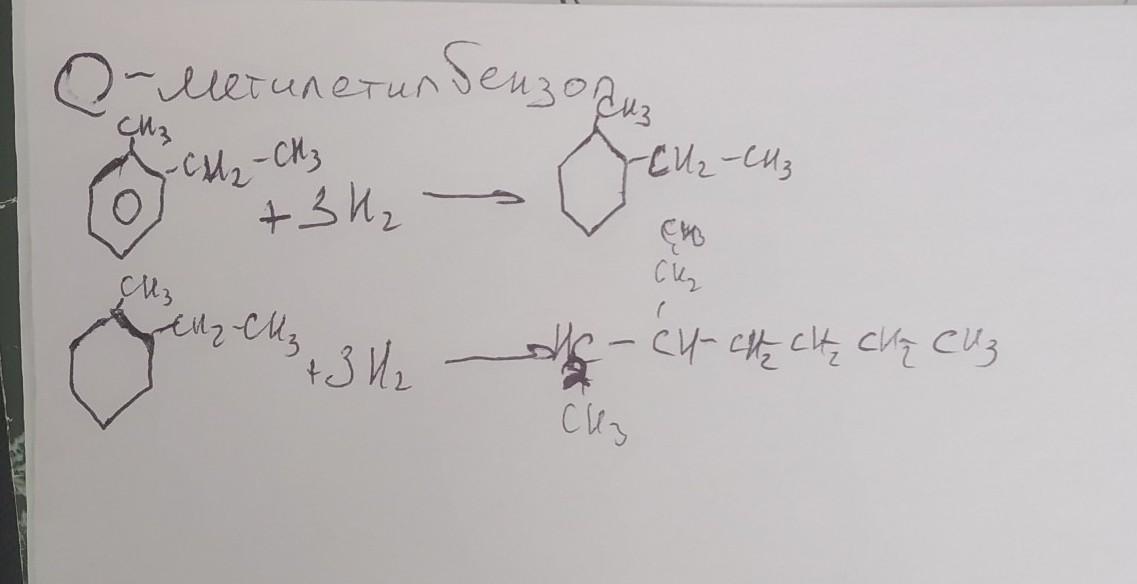 О-метилетилбензол
CH3
-CH2-CH3
+ 3H2 →
CH3
-CH2-CH3
CH3
CH2
CH3
-CH2-CH3
+3H2 →
HC - CH - CH2 CH2 CH2 CH3
CH3